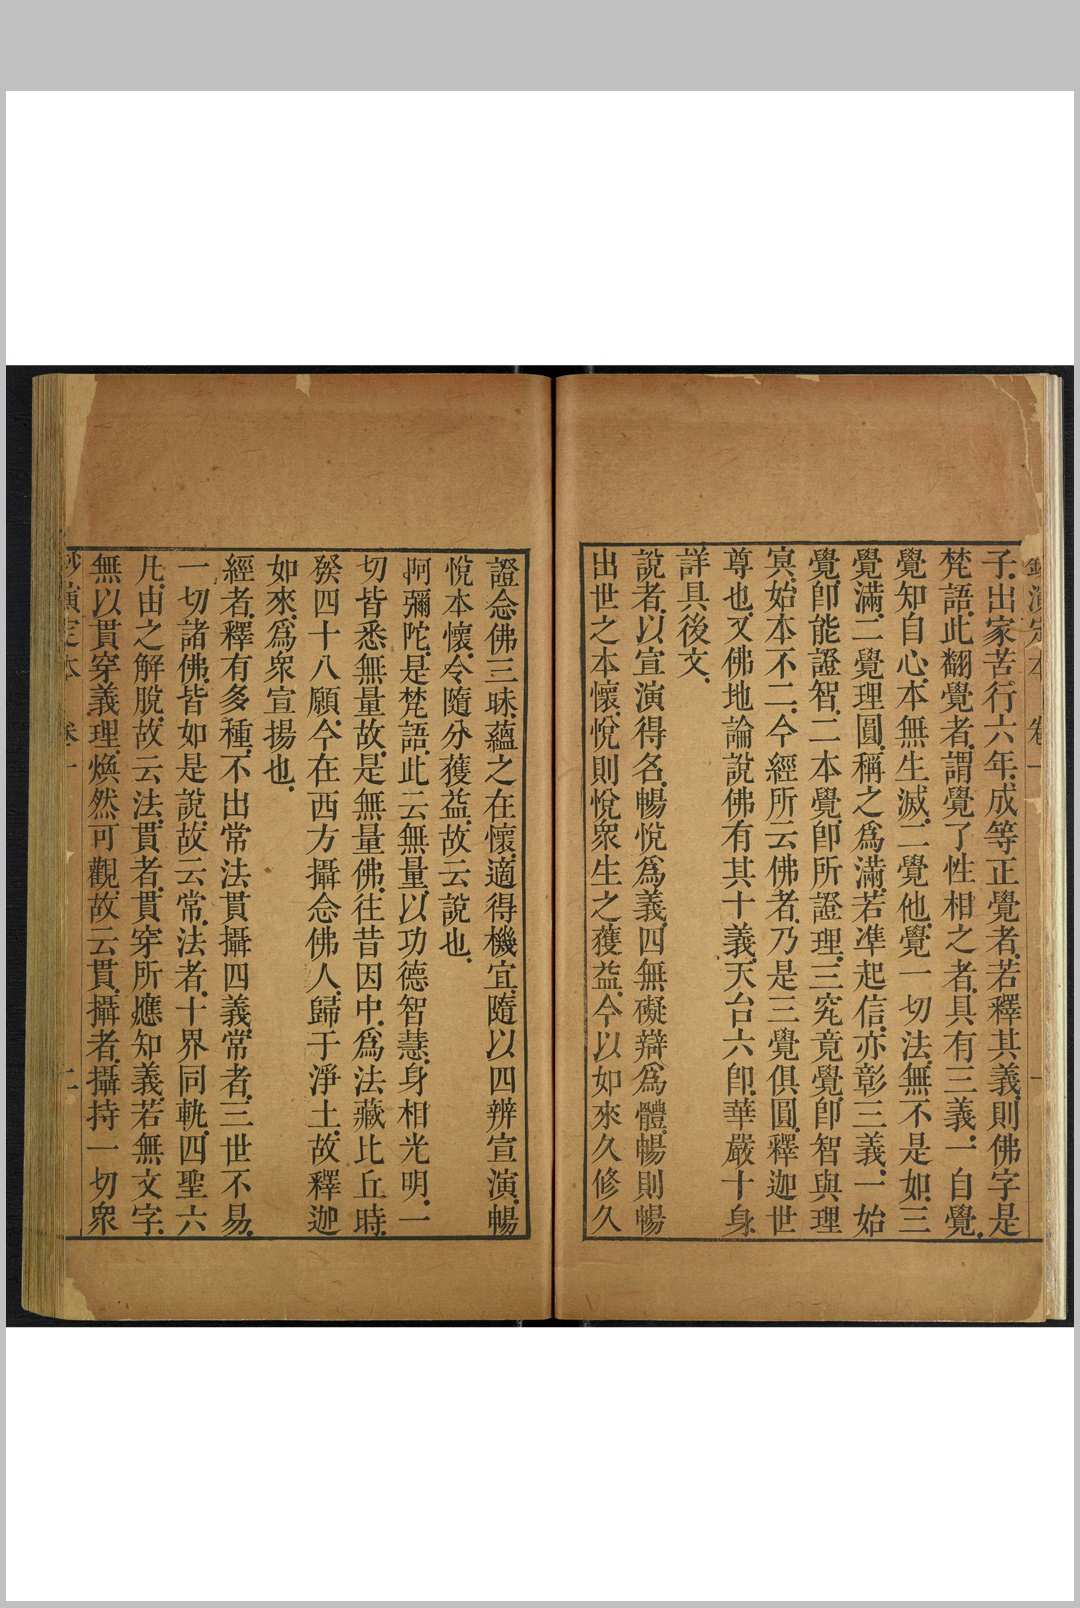 鈔演定本 卷一 一
子.出家苦行六年.成等正覺者.若釋其義.則佛字是
梵語.此翻覺者.謂覺了性相之者.具有三義.一自覺.
覺知自心.本無生滅.二覺他.覺一切法.無不是如.三
覺滿.二覺理圓.稱之爲滿.若凖起信.亦彰三義.一始
覺.卽能證智.二本覺.卽所證理.三究竟覺.卽智與理
冥.始本不二.今經所云佛者.乃是三覺俱圓.釋迦世
尊也.又佛地論說佛有其十義.天台六卽.華嚴十身.
詳具後文.
說者.以宣演得名.暢悅爲義.四無礙辯爲體.暢則暢
出世之本懷.悅則悅衆生之獲益.今以如來久修久
證念佛三昧.蘊之在懷.適得機宜.隨以四辨宣演.暢
悅本懷.令隨分獲益.故云說也.
阿彌陀.是梵語.此云無量.以功德智慧.身相光明.一
切皆悉無量故.是無量佛.往昔因中.爲法藏比丘時.
發四十八願.今在西方攝念佛人.歸于淨土.故釋迦
如來.爲衆宣揚也.
經者.釋有多種.不出常法貫攝四義.常者.三世不易.
一切諸佛.皆如是說.故云常.法者.十界同軌.四聖六
凡.由之解脫.故云法.貫者.貫穿所應知義.若無文字.
無以貫穿義理.煥然可觀.故云貫.攝者.攝持一切衆
鈔演定本 卷一 二